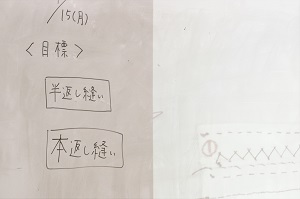 /15(月)
〈目標〉
半返し縫い
本返し縫い
①